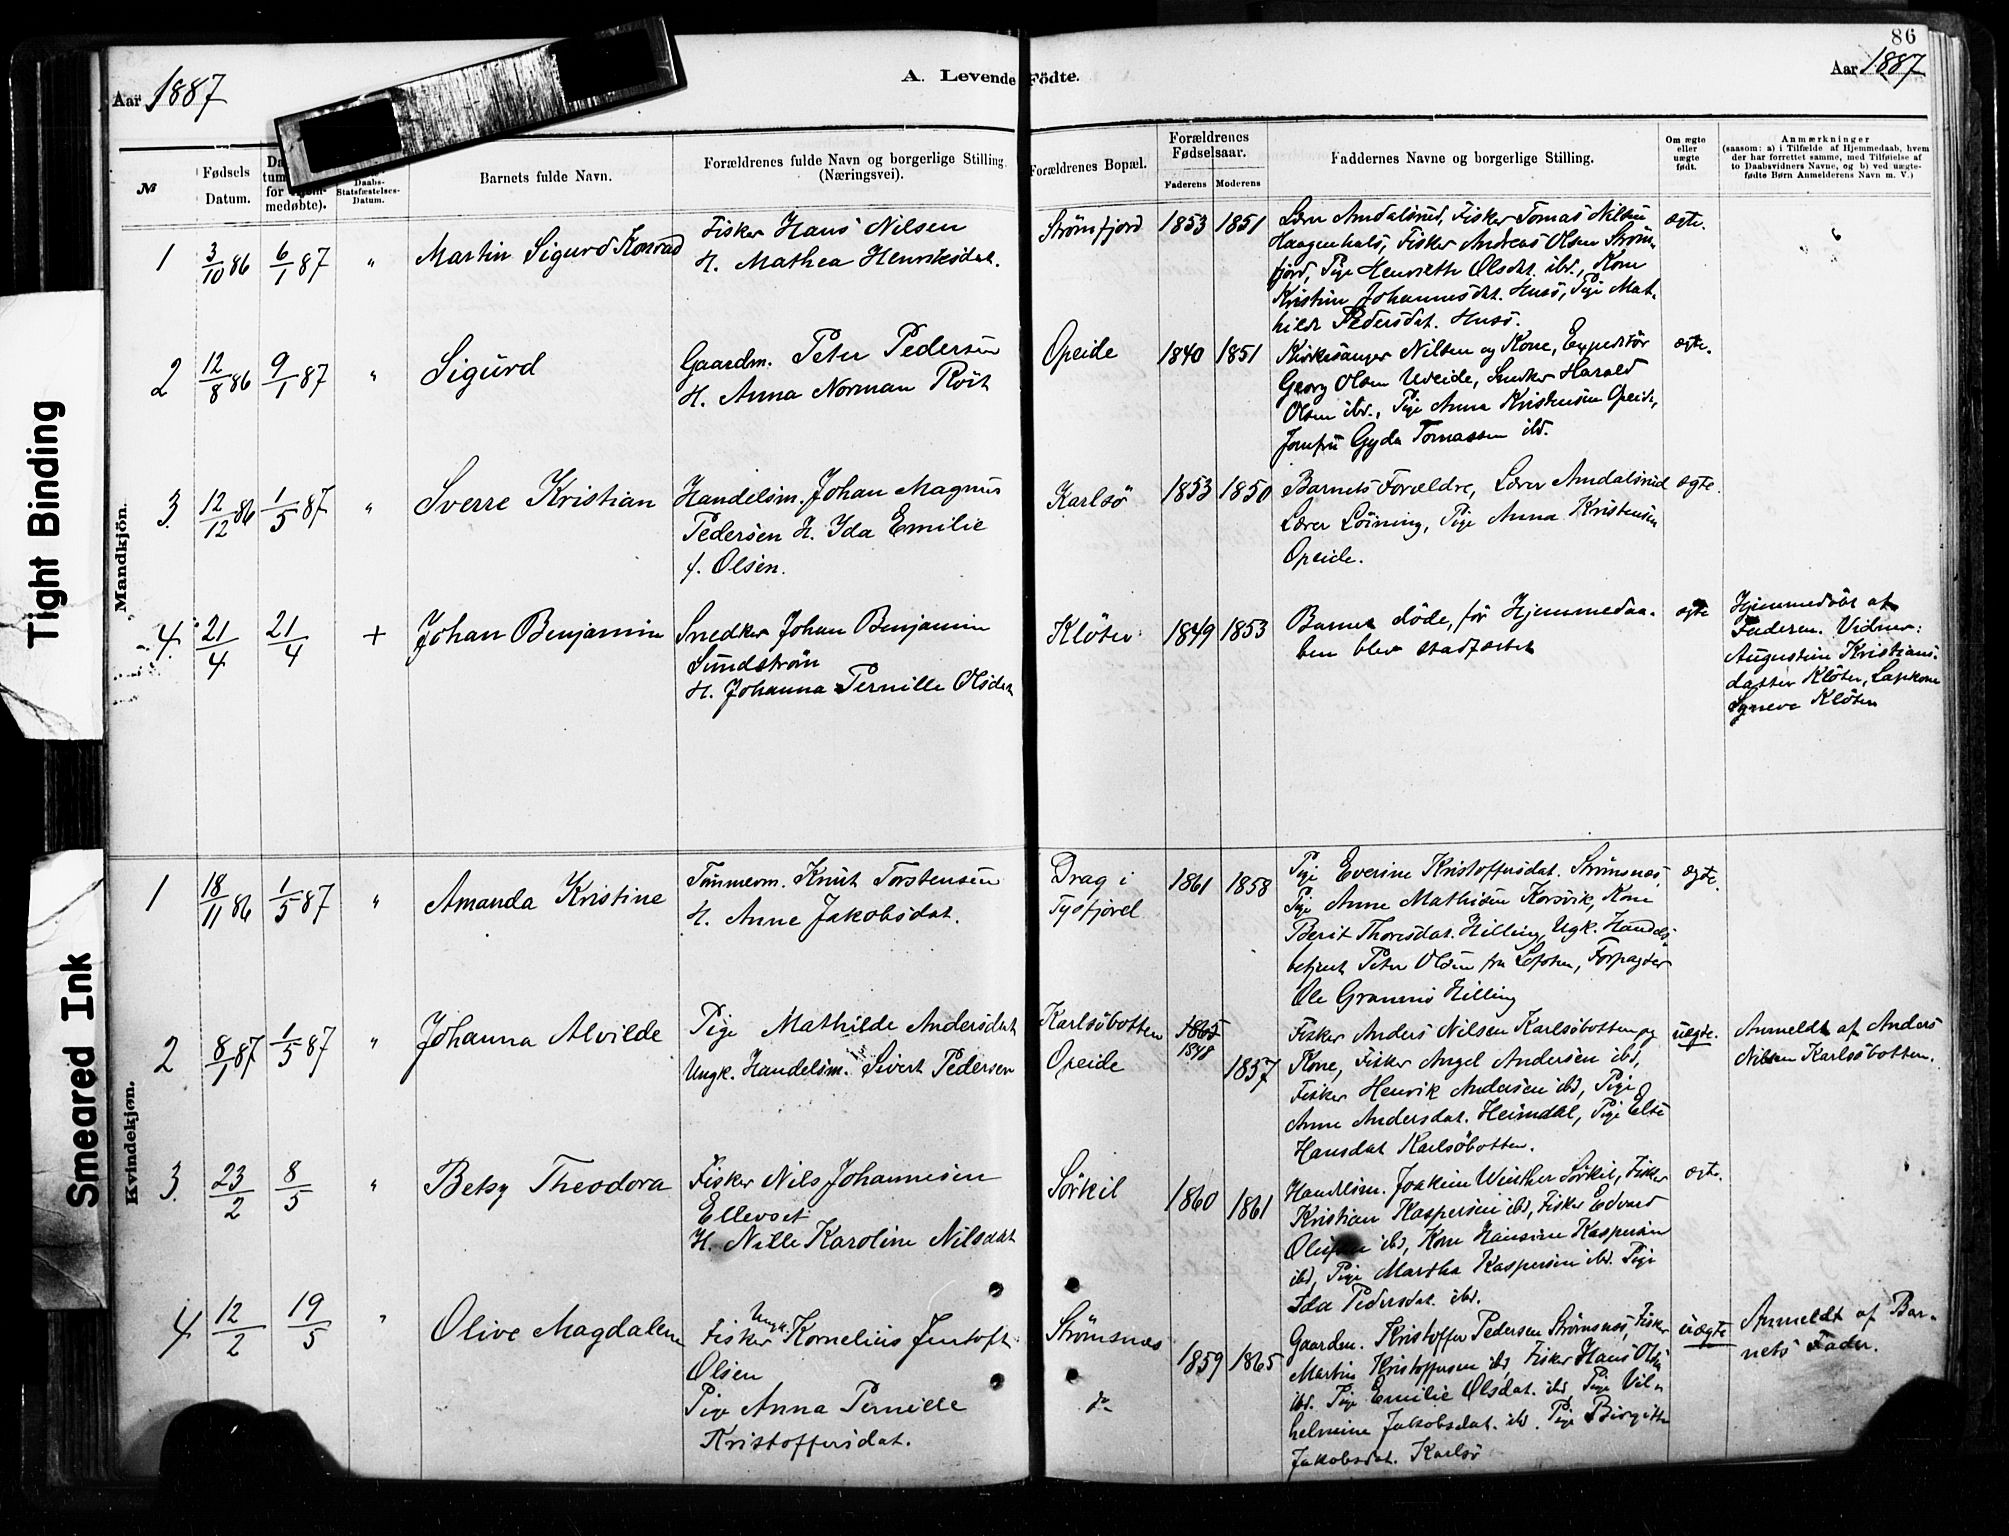 86
Aar 1887
A. Levende Födte.
Aar 1887
№
Fødsels Datum.
for medøbte).
Daabs-Statsfæstelses-Datum.
Barnets fulde Navn.
Forældrenes fulde Navn og borgerlige Stilling (Næringsvei).
Forældrenes Bopæl.
Forældrenes Fødselsaar.
Faderens
Moderens
Faddernes Navne og borgerlige Stilling.
Om ægte eller uægte født.
Anmærkninger
(saasom: a) i Tilfælde af Hjemmedaab, hvem
der har forrettet samme, med Tilføielse af
to Daabsvidners Navne, og b) ved uægte-
fødte Børn Anmelderens Navn m. V.)
Tight Binding
Smeared Ink
Mandkjön.
1 3/10 86 6/1 87 " Martin Sigurd Konrad
Fisker Hans Nilsen
H. Mathea Henriksdat.
Strømfjord 1853 1851
Lærer Amdalsrud, Fisker Tomas Nilsen
Haagenhals, Fisker Andreas Olsen Strøm-
fjord, Pige Henriette Olsdat. ibd., Kone
Kristine Johannesdat. Husø, Pige Mat-
hilde Pedersdat. Husø.
ægte.
2 12/8 86 9/1 87 " Sigurd
Gaardm. Peter Pedersen
H. Anna Norman Röst
Opeide 1840 1851
Kirkesanger Nilsen og Kone, Expeditör
Georg Olsen Uveide, Snedker Harald
Olsen ibd., Pige Anna Kristensen Opeide,
Jomfru Gyda Tomassen ibd.
ægte.
3 12/12 86 1/5 87 " Sverre Kristian
Handelsm. Johan Magnus
Pedersen H. Ida Emilie
f. Olsen.
Karlsö 1853 1850
Barnets Forældre, Lærer Amdalsrud
Lærer Löining, Pige Anna Kristensen
Opeide.
ægte.
4 21/4 21/4 + Johan Benjamin
Snedker Johan Benjamin
Sundström
H. Johanna Pernille Olsdat
Kløten 1849 1853
Barnet döde, før Hjemmedaa-
ben blev stadfæstet
ægte
Hjemmedöbt af
Faderen. Vidner:
Augustine Kristians-
datter Kløten, Lapkone
Synneve Kløten
Kvindekjøn.
1 18/11 86 1/5 87 " Amanda Kristine
Tømmerm. Knut Torstensen
H. Anne Jakobsdat.
Drag i
Tysfjord
1861 1858
Pige Everine Kristoffersdat. Strømsnes,
Pige Anne Mathisen Korsvik, Kone
Berit Thoresdat. Hilling, Ugk. Handels-
betjent Peter Olsen fra Lofoten, Forpagter
Ole Hilling
ægte.
2 8/1 87 1/5 87 " Johanna Alvilde
Pige Mathilde Andersdat
Ungk. Handelsm. Sivert Pedersen
Karlsöbotten
Opeide
1865
1848
1857
Fisker Anders Nilsen Karlsöbotten og
Kone, Fisker Angel Andersen ibd,
Fisker Henrik Andersen ibd, Pige
Anne Andersdat. Heimdal, Pige Else
Hansdat Karlsöbotten.
uægte.
Anmeldt af Anders
Nilsen Karlsöbotten.
3 23/2 8/5 " Betsy Theodora
Fisker Nils Johannesen
Ellevset
H. Nille Karoline Nilsdat
Sörkil
1860 1861
Handelsm. Joakim Winther Sörkil, Fisker
Kristian Kaspersen ibd, Fisker Edvard
ibd, Kone Hansine Kaspersen
ibd, Pige Martha Kaspersen ibd. Pige
Ida Pedersdat. ibd.
ægte.
4 12/2 19/5 " Olive Magdalene
Ungk.
Fisker Kornelius Jentoft
Olsen
Pige Anna Pernille
Kristoffersdat.
Strømsnes
do
1859 1865
Gaardm. Kristoffer Pedersen Strømsnes, Fisker
Martin Kristoffersen ibd, Fisker Hans Olsen
ibd. Pige Emilie Olsdat. ibd, Pige Vil-
helmine Jakobsdat. ibd. Pige Birgitte
Jakobsdat. Karlsö
uægte
Anmeldt af Bar-
nets Fader.